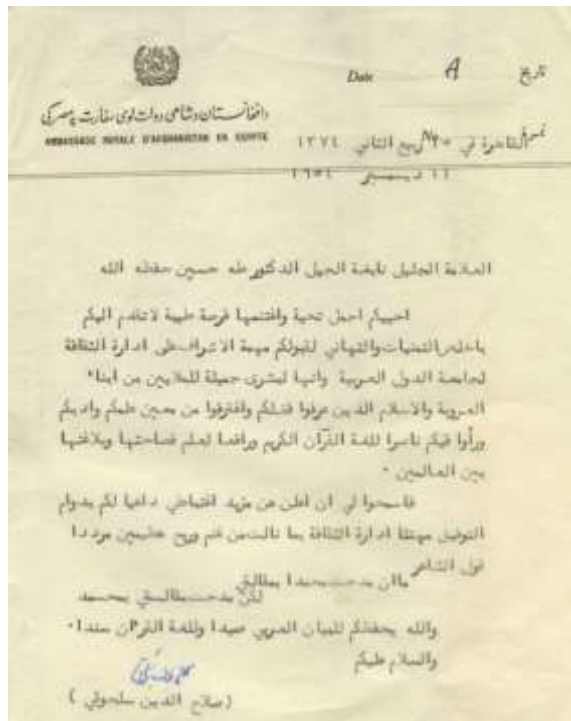 Date A تاريخ
دافغانستان دشاهی دولت لوی سفارت په مصر کی
AMBASSADE ROYALE D'AFGHANISTAN EN EGYPTE
القاهرة في ٢٥ ربيع الثاني ١٣٧٤
١١ ديسمبر ١٩٥٤
العلامة الجليل نابغة الجيل الدكتور طه حسين حفظه الله
احييكم اجمل تحية واغتنمها فرصة طيبة لاتقدم اليكم
باخلص التمنيات والتهاني لقبولكم مهمة الاشراف على ادارة الثقافة
لجامعة الدول العربية وانها لبشرى جميلة للملايين من ابناء
العروبة والاسلام الذين عرفوا فضلكم واغترفوا من معين علمكم وادبكم
ورأوا فيكم ناصرا للغة القرآن الكريم ورافعا لعلم فصاحتها وبلاغتها
بين العالمين ٠
فاسمحوا لي ان اعلن عن مزيد اغتباطي داعيا لكم بدوام
التوفيق مهنئا ادارة الثقافة بما نالت من غنم وربح عظيمين مرددا
قول الشاعر
ماان مدحت محمدا بمقالتي
لكن مدحت مقالتي بمحمد
والله يحفظكم للبيان العربي عميدا وللغة القرآن سندا٠
والسلام عليكم
(صلاح الدين سلجوقي)